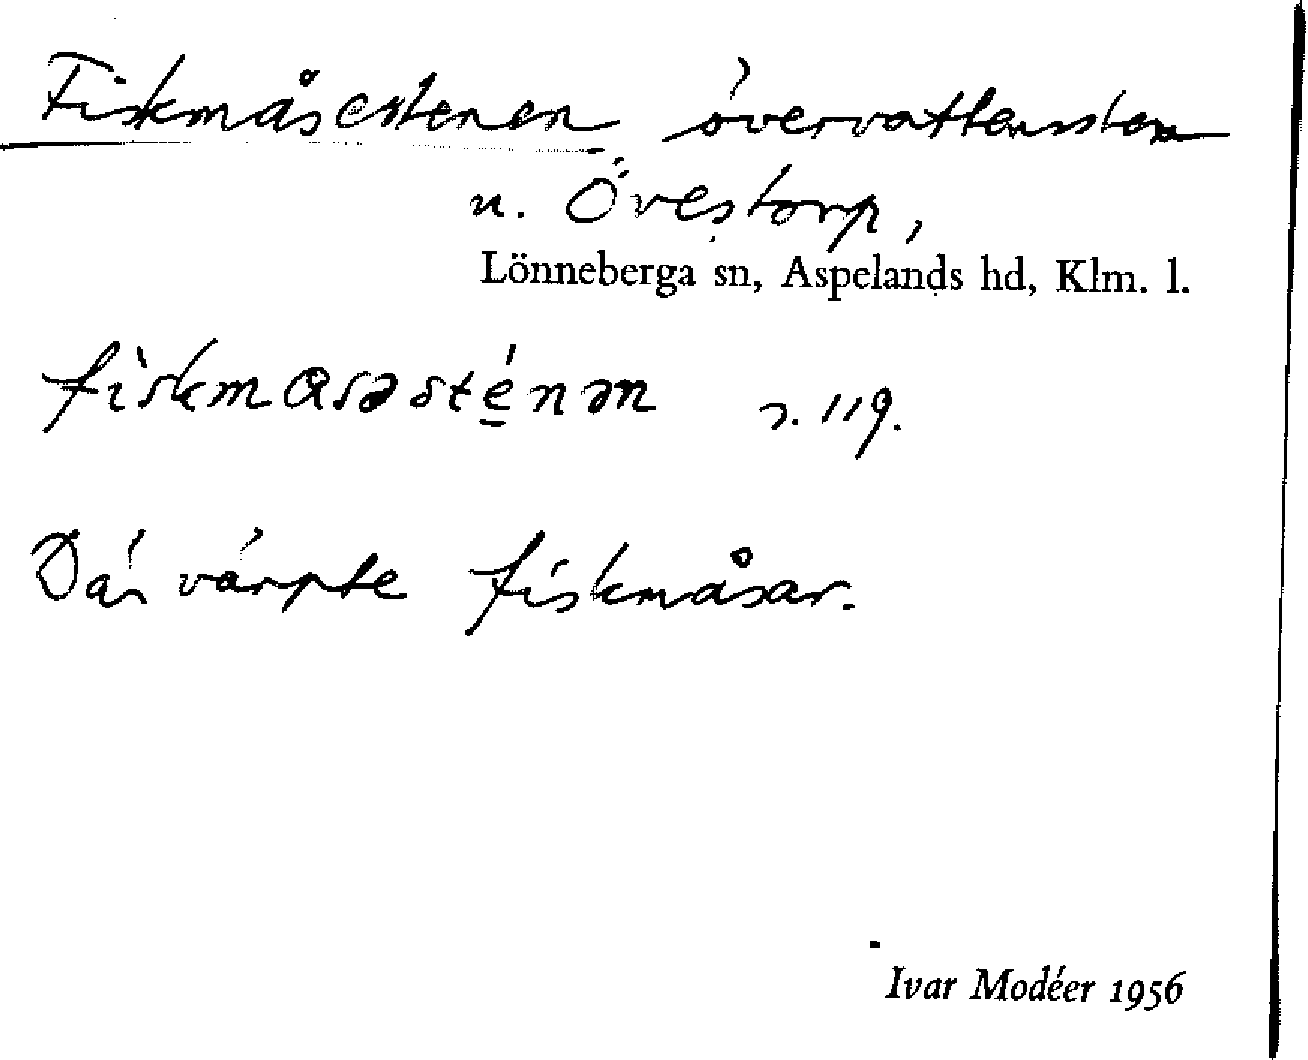 Fiskmåsestenen övervattenssten
u. Övestorp,
Lönneberga sn, Aspelands hd, Klm. l.
fìskmɑsəsté̱nən s. 119.
Där värpte fiskmåsar.
Ivar Modéer 1956